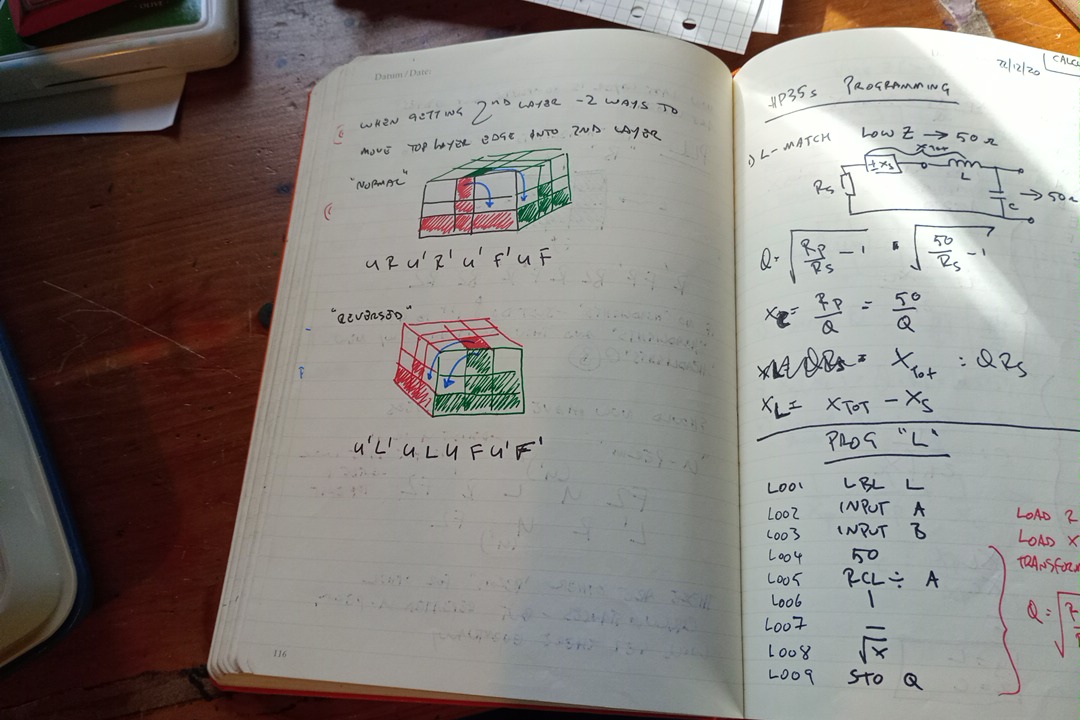 Datum / Date:
WHEN GETTING 2ND LAYER - 2 WAYS TO
MOVE TOP LAYER EDGE INTO 2ND LAYER
"NORMAL"
U R U' R' U' F' U F
"REVERSED"
U' L' U L U F U' F'
116
22/12/20
HP35s PROGRAMMING
1) L-MATCH LOW Z → 50 Ω
XTOT
±XS
L
RS
C
→ 50Ω
Q = √(RP/RS - 1) = √(50/RS - 1)
XC = RP/Q = 50/Q
XTOT = QRS
XL = XTOT - XS
PROG "L"
L001 LBL L
L002 INPUT A
L003 INPUT B
L004 50
L005 RCL ÷ A
L006 1
L007 –
L008 √x
L009 STO Q
LOAD
LOAD X
Q = √